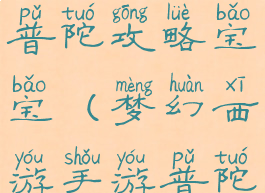 pǔ tuó gōng lüè bǎo
普陀攻略宝
bǎo mèng huàn xī
宝（梦幻西
yóu shǒu yóu pǔ tuó
游手游普陀